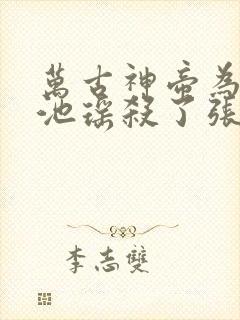 萬古神帝為
池瑤殺了張
李志雙